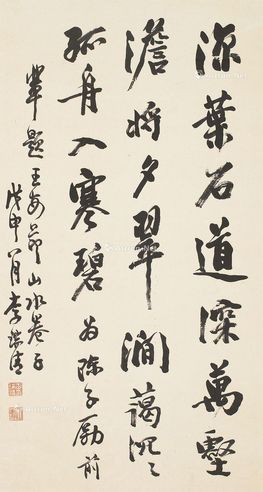 涼葉石道深萬壑
澹將夕翠澗藹沉々
孤舟入寒碧 為陳子勵前
輩題王安節山水卷子
戊申八月李瑞清